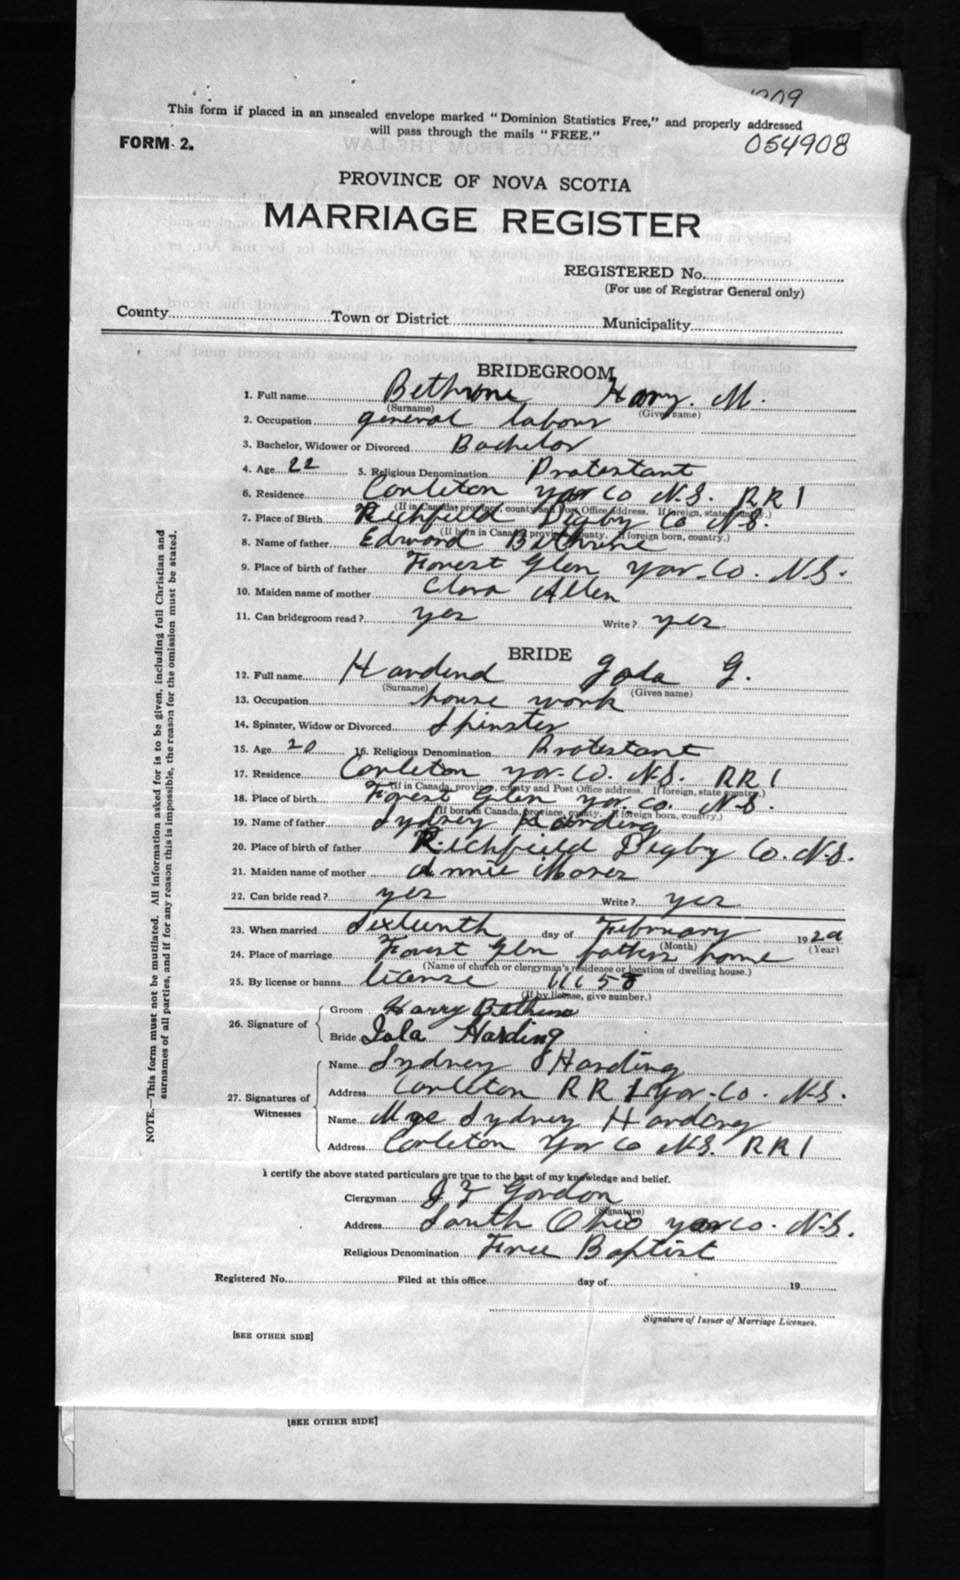 1209
This form if placed in an unsealed envelope marked "Dominion Statistics Free," and properly addressed
will pass through the mails "FREE."
FORM 2.
054908
PROVINCE OF NOVA SCOTIA
MARRIAGE REGISTER
REGISTERED No.
(For use of Registrar General only)
County Town or District Municipality
BRIDEGROOM
1. Full name Bethrone Harry. M.
(Surname) (Given name)
2. Occupation general labour
3. Bachelor, Widower or Divorced Bachelor
4. Age 22 5. Religious Denomination Protestant
6. Residence Carleton Yar Co N.S. RR 1
(If in Canada, province, county and Post Office Address. If foreign, state country.)
7. Place of Birth Richfield Digby Co N.S.
(If born in Canada, province, county. If foreign born, country.)
8. Name of father Edward Bethrine
9. Place of birth of father Forest Glen Yar-Co. N.S.
10. Maiden name of mother Clara Allen
11. Can bridegroom read? yes Write? yes
BRIDE
12. Full name Hardend Iola G.
(Surname) (Given name)
13. Occupation house work
14. Spinster, Widow or Divorced Spinster
15. Age 20 16. Religious Denomination Protestant
17. Residence Carleton Yar-Co. N.S. RR 1
(If in Canada, province, county and Post Office address. If foreign, state country.)
18. Place of birth Forest Glen Yar Co. N.S.
(If born in Canada, province, county. If foreign born, country.)
19. Name of father Sydney Harding
20. Place of birth of father Richfield Digby Co. N.S.
21. Maiden name of mother Annie Moses
22. Can bride read? yes Write? yes
23. When married Sixteenth day of February 1929
(Month) (Year)
24. Place of marriage Forest Glen fathers home
(Name of church or clergyman's residence or location of dwelling house.)
25. By license or banns license 11158
(If by license, give number.)
26. Signature of Groom Harry Bethune
Bride Iola Harding
27. Signatures of Witnesses Name Sydney Harding
Address Carleton RR 1 Yar-Co. N.S.
Name Mrs Sydney Harding
Address Carleton Yar Co N.S. RR 1
I certify the above stated particulars are true to the best of my knowledge and belief.
Clergyman Gordon
(Signature)
Address South Ohio Yar Co. N.S.
Religious Denomination Free Baptist
Registered No. Filed at this office day of 19
Signature of Issuer of Marriage Licenses.
[SEE OTHER SIDE]
[SEE OTHER SIDE]
NOTE.—This form must not be mutilated. All information asked for is to be given, including full Christian and
surnames of all parties, and if for any reason this is impossible, the reason for the omission must be stated.